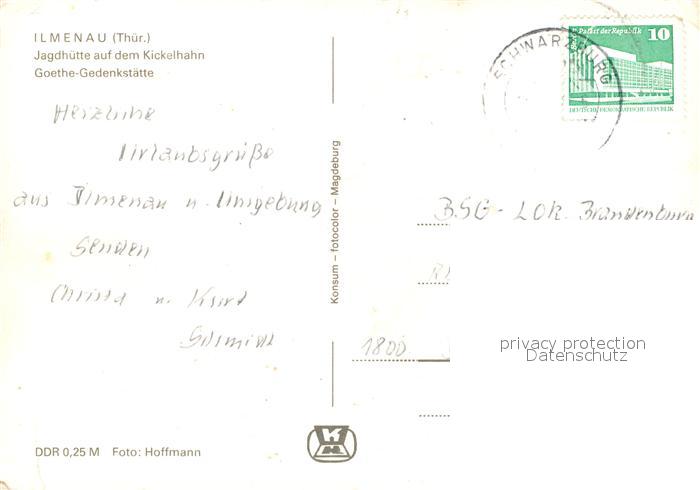 ILMENAU (Thür.)
Jagdhütte auf dem Kickelhahn
Goethe-Gedenkstätte
Herzliche
Urlaubsgrüße
aus Ilmenau u. Umgebung
senden
Christa u. Kurt
Schmidt
DDR 0,25 M Foto: Hoffmann
Konsum – fotocolor – Magdeburg
SCHWARZBURG
Palast der Republik 10
DEUTSCHE DEMOKRATISCHE REPUBLIK
BSG - LOK. Brandenburg
1800
privacy protection
Datenschutz